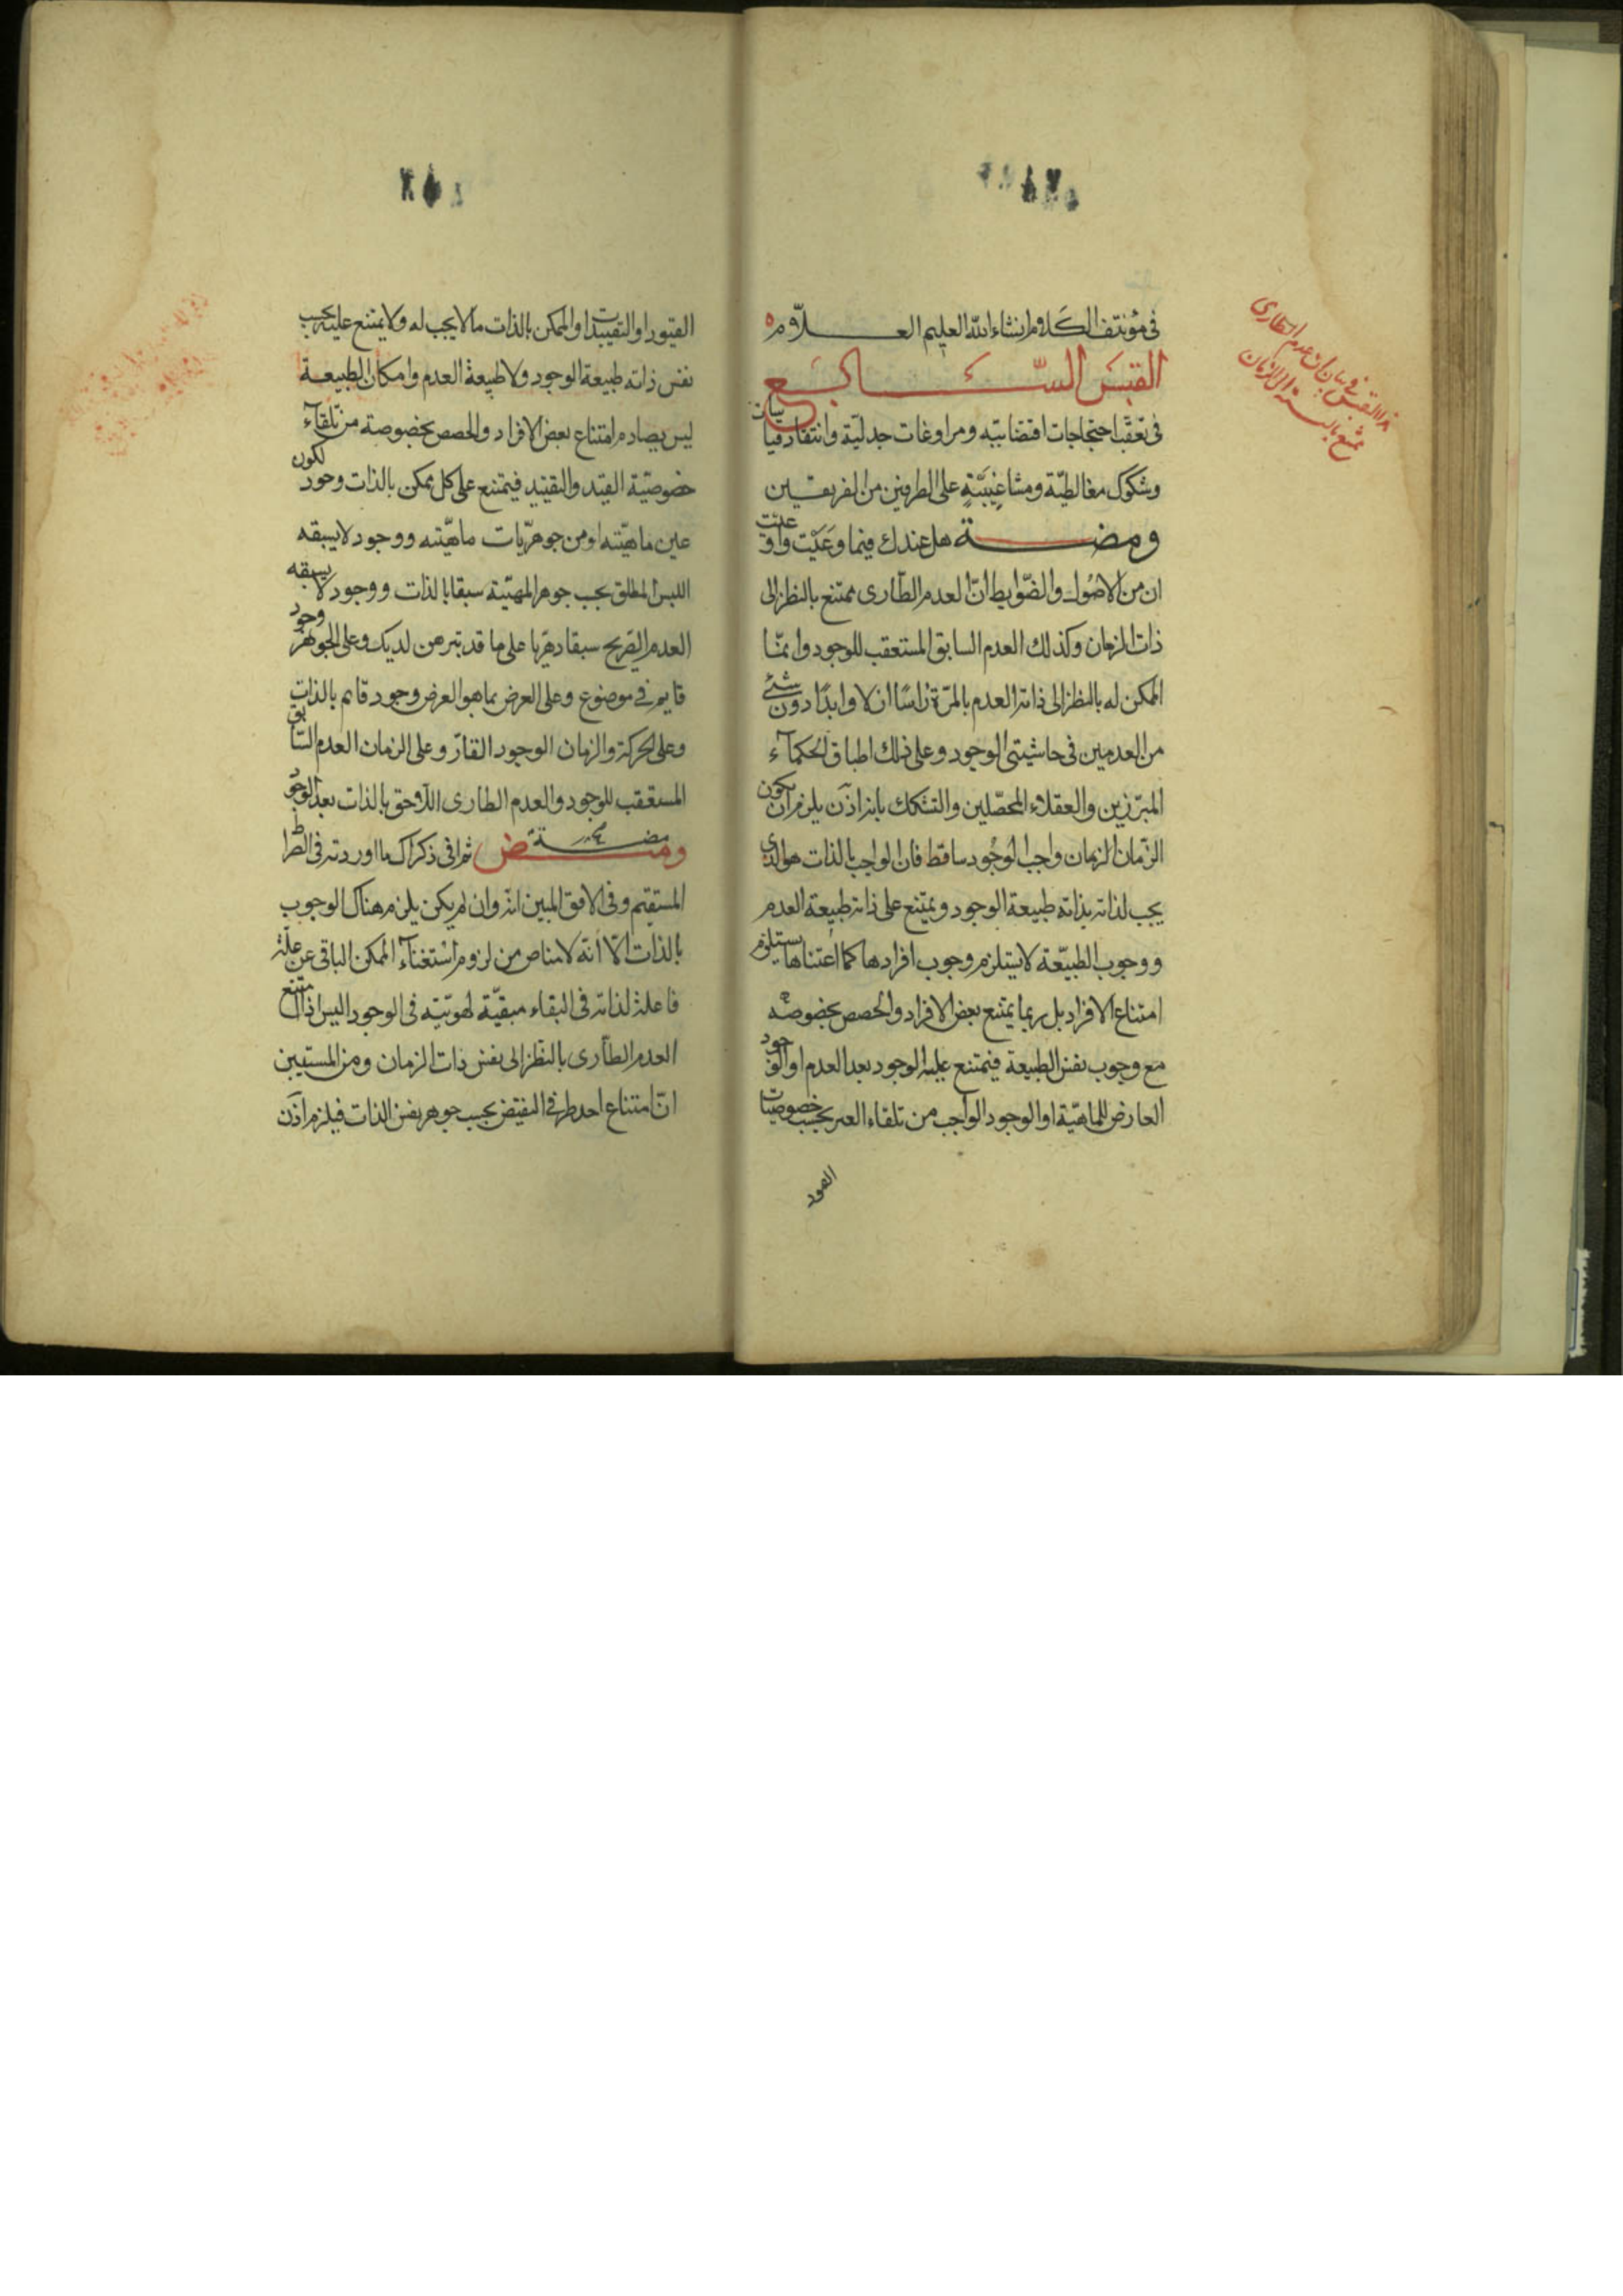 فى مؤتنف الكلام انشاء الله العليم العلّام
القبس السابع
فى تعقّب احتجاجات اقتضابيّه ومراوغات جدليّة وانتقاد قياسات
وشكوك مغالطيّة ومشاغبيّة على الطرفين من الفريقين
ومضة هل عندك فيما وعيت واوعيت
ان من الاصول والضّوابط انّ العدم الطّارى ممتنع بالنظر الى
ذات الزمان وكذلك العدم السابق المستعقب للوجود وانمّا
الممكن له بالنظر الى ذاته العدم بالمرّة راسًا ازلا وابدًا دون شئ
من العدمين فى حاشيتى الوجود وعلى ذلك اطباق الحكمآء
المبرّزين والعقلاء المحصّلين والتشكك بانه اذن يلزم ان يكون
الزمان الزمان واجب الوجود ساقط فان الواجب بالذات هو الذى
يجب لذاته بذاته طبيعة الوجود ويمتنع على ذاته طبيعة العدم
ووجوب الطبيعّة لا يستلزم وجوب افرادها كما امتناعها يستلزم
امتناع الافراد بل ربما يمتنع بعض الافراد والحصص بخصوصه
مع وجوب نفس الطبيعة فيمتنع عليه الوجود بعد العدم او الوجود
العارض للماهيّة او الوجود الواجب من تلقاء الغير بحسب خصوصيّات
القيود
القيود او التقييدات والممكن بالذات ما لا يجب له ولا يمتنع عليه بحسب
نفس ذاته طبيعة الوجود ولا طبيعة العدم وامكان الطبيعة
ليس يصادم امتناع بعض الافراد والحصص بخصوصه من تلقآء
خصوصيّة القيد والتقييد فيمتنع على كل ممكن بالذات وجود لكون
عين ماهيّته او من جوهريّات ماهيّته ووجود لا يسبقه
الليس المطلق بحسب جوهر المهيّة سبقا بالذات ووجود لا يسبقه
العدم الصّريح سبقا دهريّا على ما قد تبرهن لديك وعلى الجوهر وجود
قايم فى موضوع وعلى العرض بما هو العرض وجود قايم بالذات
وعلى الحركة والزمان الوجود القارّ وعلى الزمان العدم السّابق
المستعقب للوجود والعدم الطارى اللّاحق بالذات بعد الوجود
ومض ومضة ثم افى ذكراك ما اوردته فى الصّراط
المستقيم وفى الافق المبين انه وان لم يكن يلزم هناك الوجوب
بالذات الّا أنّه لا مناص من لزوم استغنآء الممكن الباقى عن علّة
فاعلة لذاته فى البقاء مبقيّة لهويّته فى الوجود اليس اذا امتنع
العدم الطّارى بالنّظر الى نفس ذات الزمان ومن المستبين
انّ امتناع احد طرفى النقيض بحسب جوهر نفس الذات فيلزم اذن